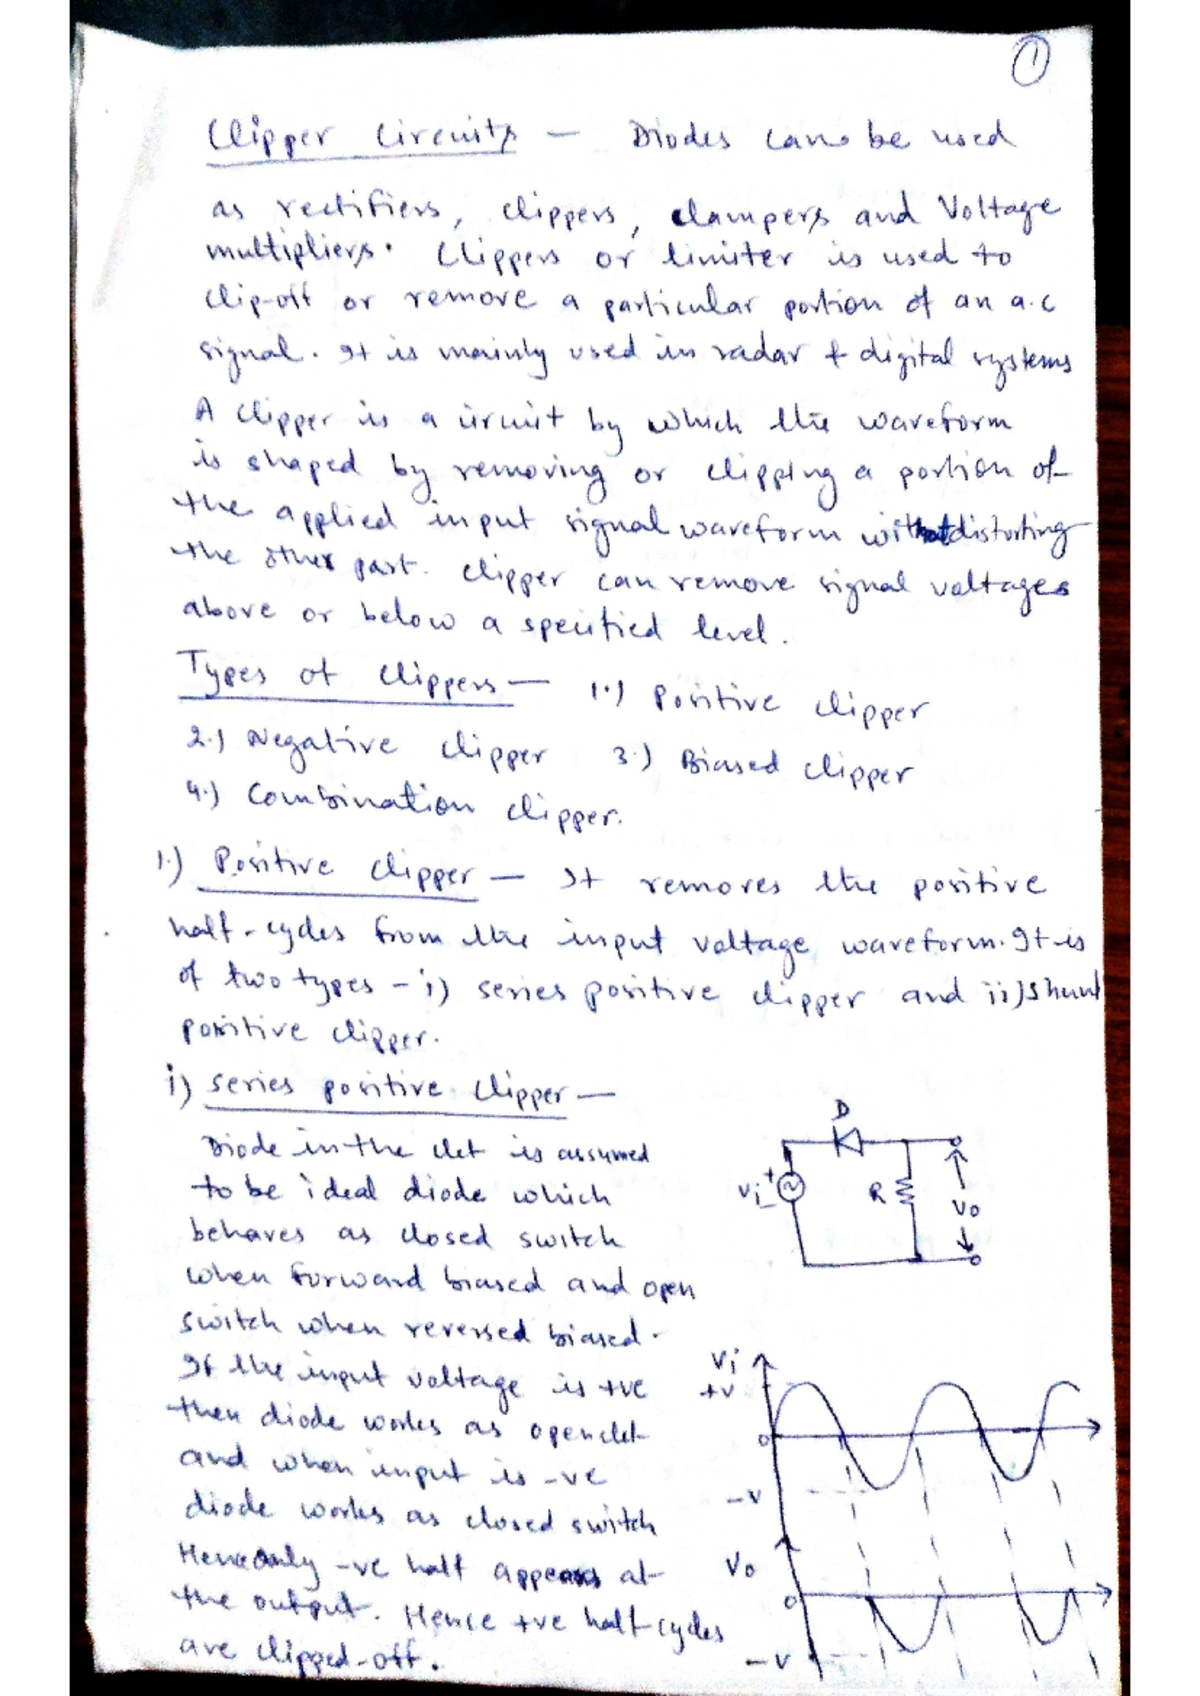 1
Clipper Circuits — Diodes can be used
as rectifiers, clippers, clampers and Voltage
multipliers. Clippers or limiter is used to
clip-off or remove a particular portion of an a.c
signal. It is mainly used in radar & digital systems
A clipper is a circuit by which the waveform
is shaped by removing or clipping a portion of
the applied input signal waveform without distorting
the other part. clipper can remove signal voltages
above or below a specified level.
Types of clippers — 1.) Positive clipper
2.) Negative clipper 3.) Biased clipper
4.) Combination clipper.
1.) Positive clipper — It removes the positive
half-cycles from the input voltage waveform. It is
of two types - i) series positive clipper and ii) shunt
positive clipper.
i) series positive clipper —
Diode in the ckt is assumed
to be ideal diode which
behaves as closed switch
when forward biased and open
switch when reversed biased.
If the input voltage is +ve
then diode works as open ckt
and when input is -ve
diode works as closed switch
Hence only -ve half appears at
the output. Hence +ve half cycles
are clipped-off.
D
Vi + -
R
Vo
Vi
+V
0
-V
Vo
0
-V